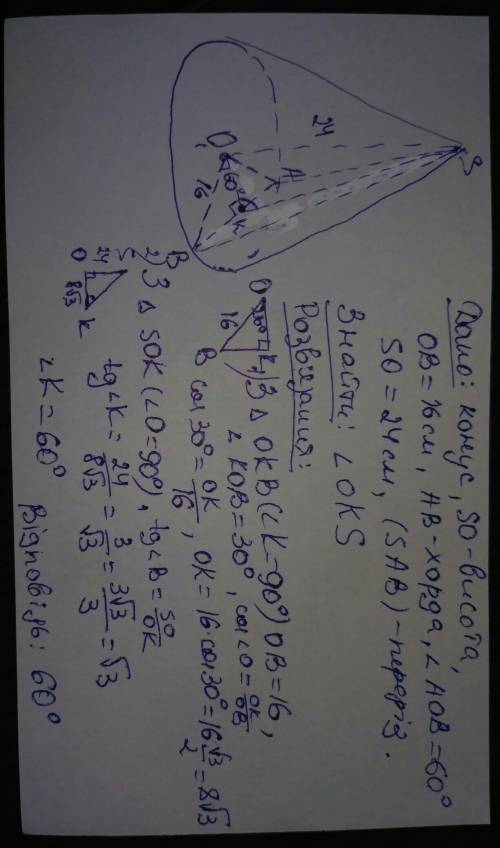 Дано: конус, SO-висота,
OB=16см, AB-хорда, ∠AOB=60°
SO=24см, (SAB)-переріз.
Знайти: ∠OKS
Розвʼязання:
1) З △ OKB (∠K-90°) OB=16,
∠KOB=30°, cos∠O=OK/OB
cos30°=OK/16, OK=16·cos30°=16√3/2=8√3
2) З △ SOK (∠O=90°), tg∠B=SO/OK
tg∠K=24/8√3=3/√3=3√3/3=√3
∠K=60°
Відповідь: 60°
S
24
O
A
60°
K
16
B
O
30°
K
16
B
S
24
O
8√3
K